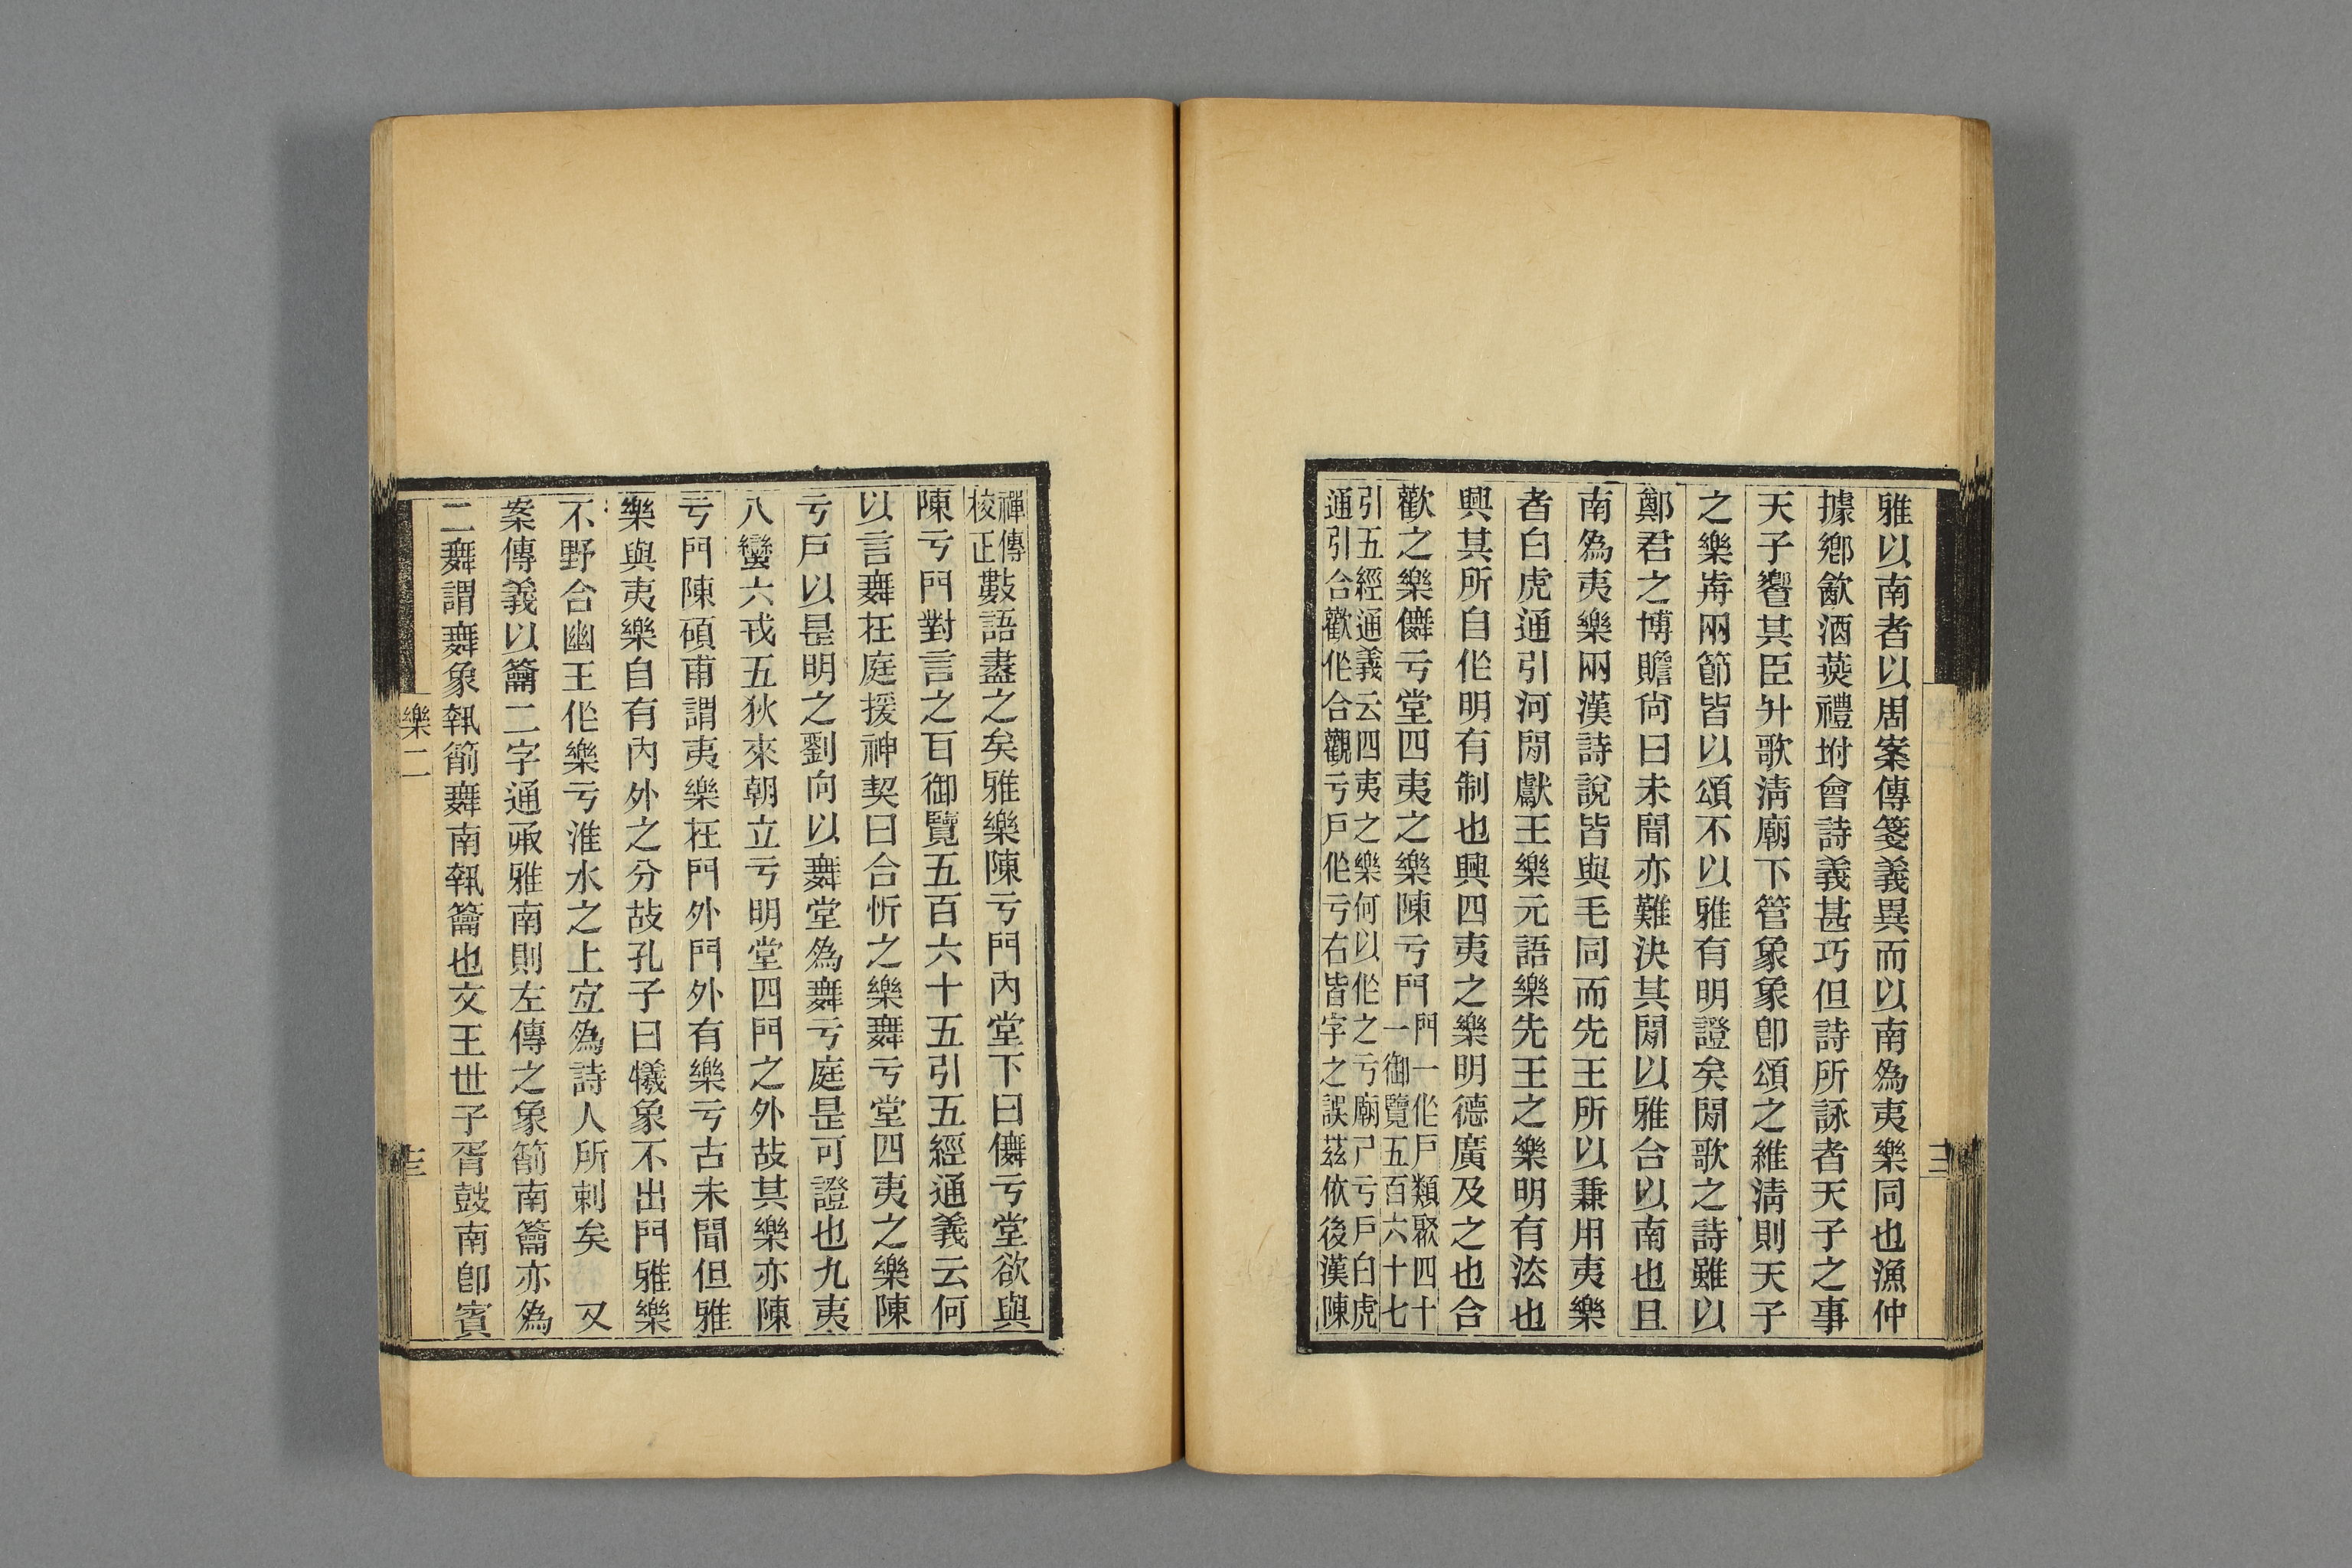 雅以南者以周案傳箋義異而以南為夷樂同也漁仲
據鄉飲酒燕禮坿會詩義甚巧但詩所詠者天子之事
天子饗其臣升歌淸廟下管象象卽頌之維淸則天子
之樂歬兩節皆以頌不以雅有明證矣閒歌之詩雖以
鄭君之博贍尙曰未聞亦難決其閒以雅合以南也且
南為夷樂兩漢詩說皆與毛同而先王所以兼用夷樂
者白虎通引河閒獻王樂元語樂先王之樂明有法也
興其所自作明有制也興四夷之樂明德廣及之也合
歡之樂儛亏堂四夷之樂陳亏門
門一作戶類聚四十
一御覽五百六十七
引五經通義云四夷之樂何以作之亏廟尸亏戶白虎
通引合歡作合觀亏戶作亏右皆字之誤茲依後漢陳
禪傳
校正
數語盡之矣雅樂陳亏門內堂下曰儛亏堂欲與
陳亏門對言之百御覽五百六十五引五經通義云何
以言舞在庭援神契曰合忻之樂舞亏堂四夷之樂陳
亏戶以是明之劉向以舞堂為舞亏庭是可證也九夷
八蠻六戎五狄來朝立亏明堂四門之外故其樂亦陳
亏門陳碩甫謂夷樂在門外門外有樂亏古未聞但雅
樂與夷樂自有內外之分故孔子曰犧象不出門雅樂
不野合幽王作樂亏淮水之上宐為詩人所刺矣　又
案傳義以籥二字通承雅南則左傳之象箾南籥亦為
二舞謂舞象執箾舞南執籥也文王世子胥鼓南卽賓
樂二